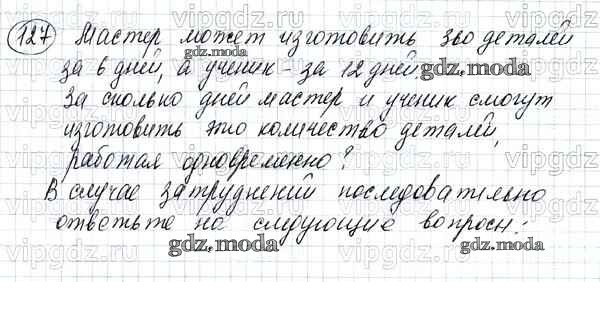 127 Мастер может изготовить 360 деталей
за 6 дней, а ученик - за 12 дней.
За сколько дней мастер и ученик смогут
изготовить это количество деталей,
работая одновременно?
В случае затруднений последовательно
ответьте на следующие вопросы:
gdz.moda
gdz.moda
gdz.moda
gdz.moda
gdz.moda
vipgdz.ru